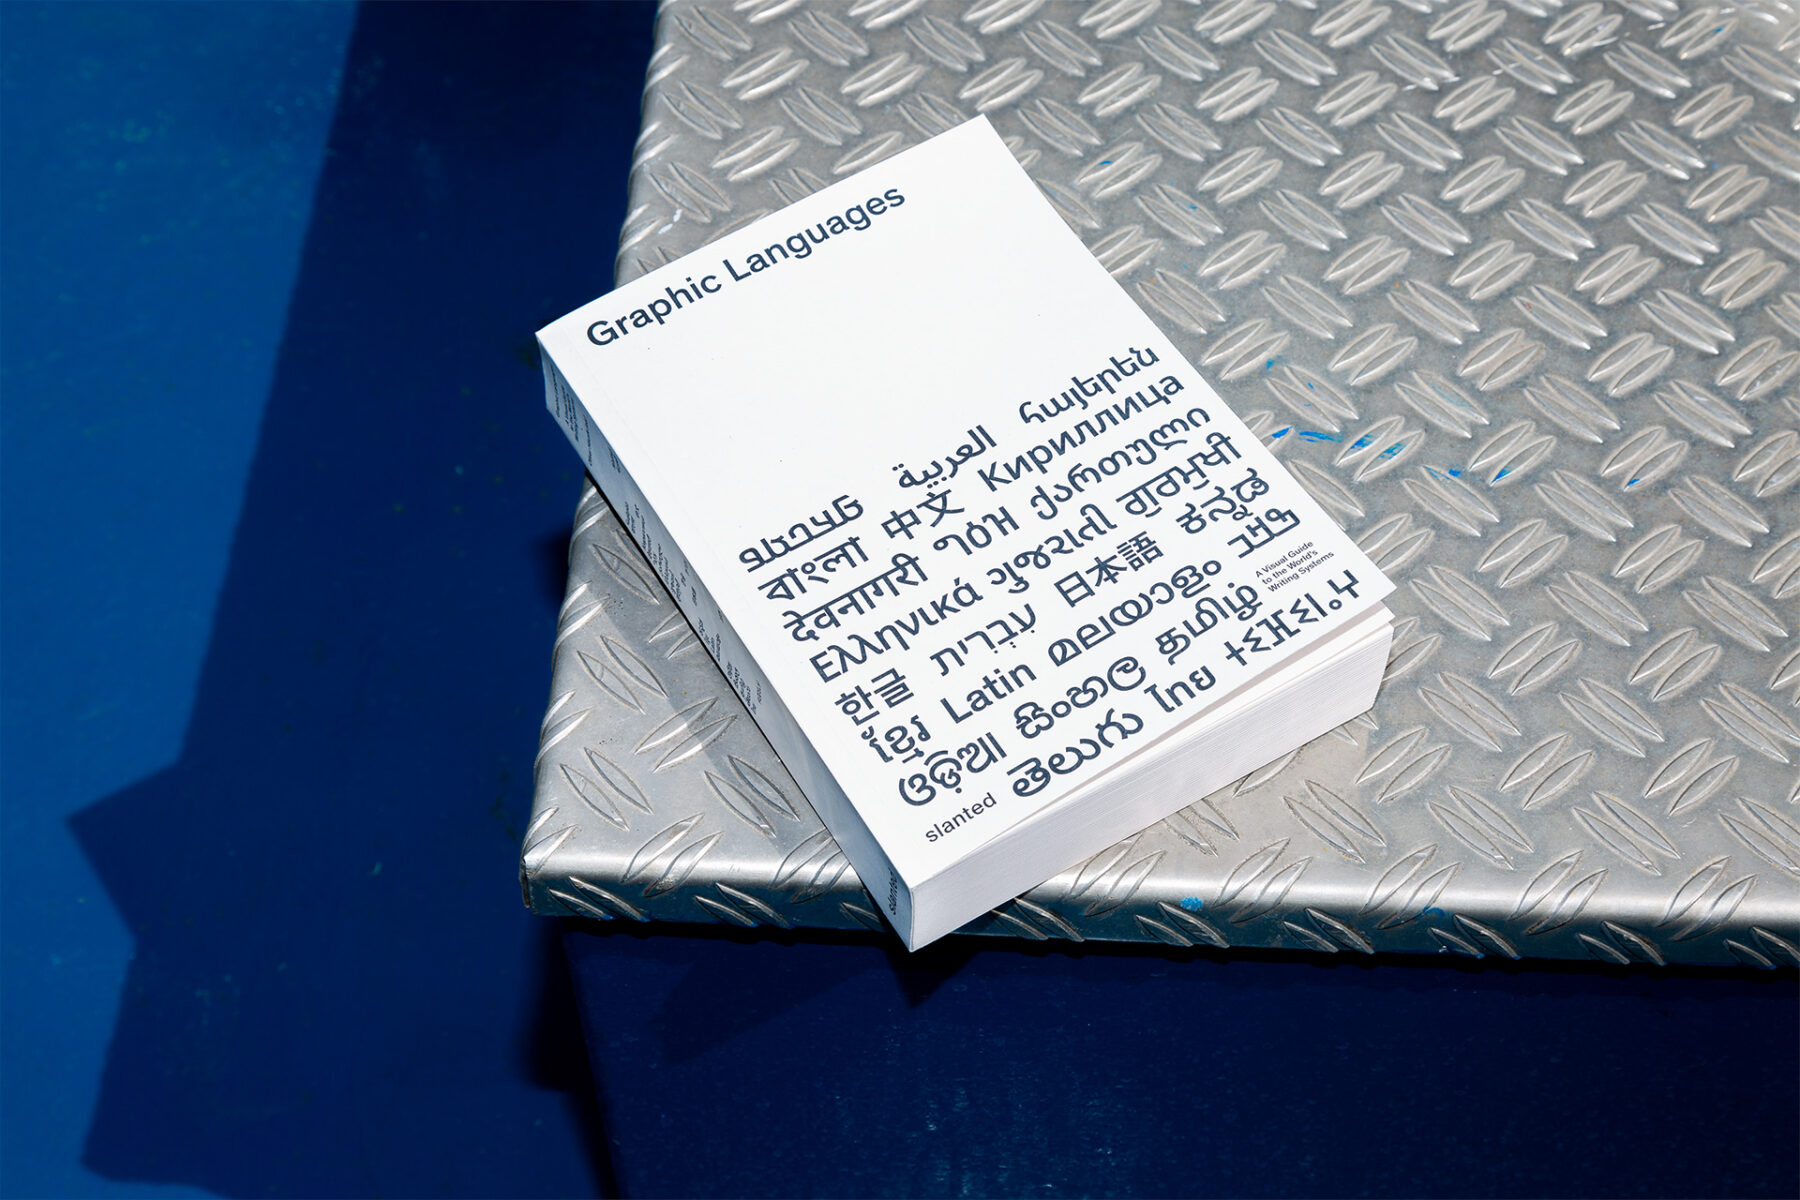 Graphic Languages
العربية հայերեն
বাংলা 中文 Кириллица
देवनागरी ግዕዝ ქართული
Ελληνικά ગુજરાતી ਗੁਰਮੁਖੀ
한글 עִבְרִית 日本語 ಕನ್ನಡ
ខ្មែរ Latin മലയാളം
ଓଡ଼ିଆ සිංහල தமிழ்
A Visual Guide
to the World's
Writing Systems
తెలుగు ไทย ⵜⵉⴼⵉⵏⴰⵖ
slanted
slanted